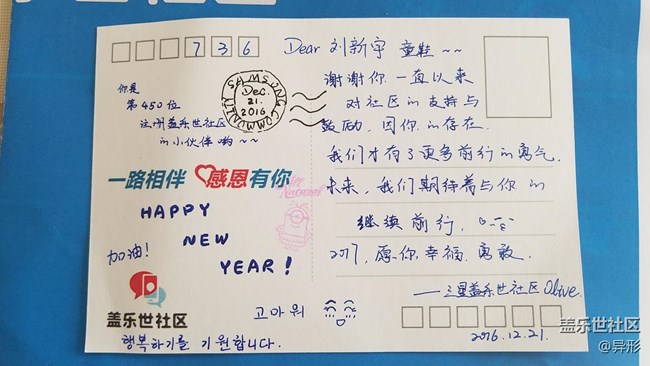 736
Dear 刘新宇 童鞋~~
你是
第450位
注册盖乐世社区
的小伙伴哟~~
SAMSUNG COMMUNITY
Dec.
21.
2016
谢谢你一直以来
对社区的支持与
鼓励,因你的存在,
我们才有了更多前行的勇气.
未来,我们期待着与你的
继续前行,
2017,愿你幸福.勇敢.
——三星盖乐世社区 Olive.
一路相伴 感恩有你
HAPPY
NEW
YEAR!
加油!
盖乐世社区
고마워
행복하기를 기원합니다.
2016.12.21.
盖乐世社区
@异形